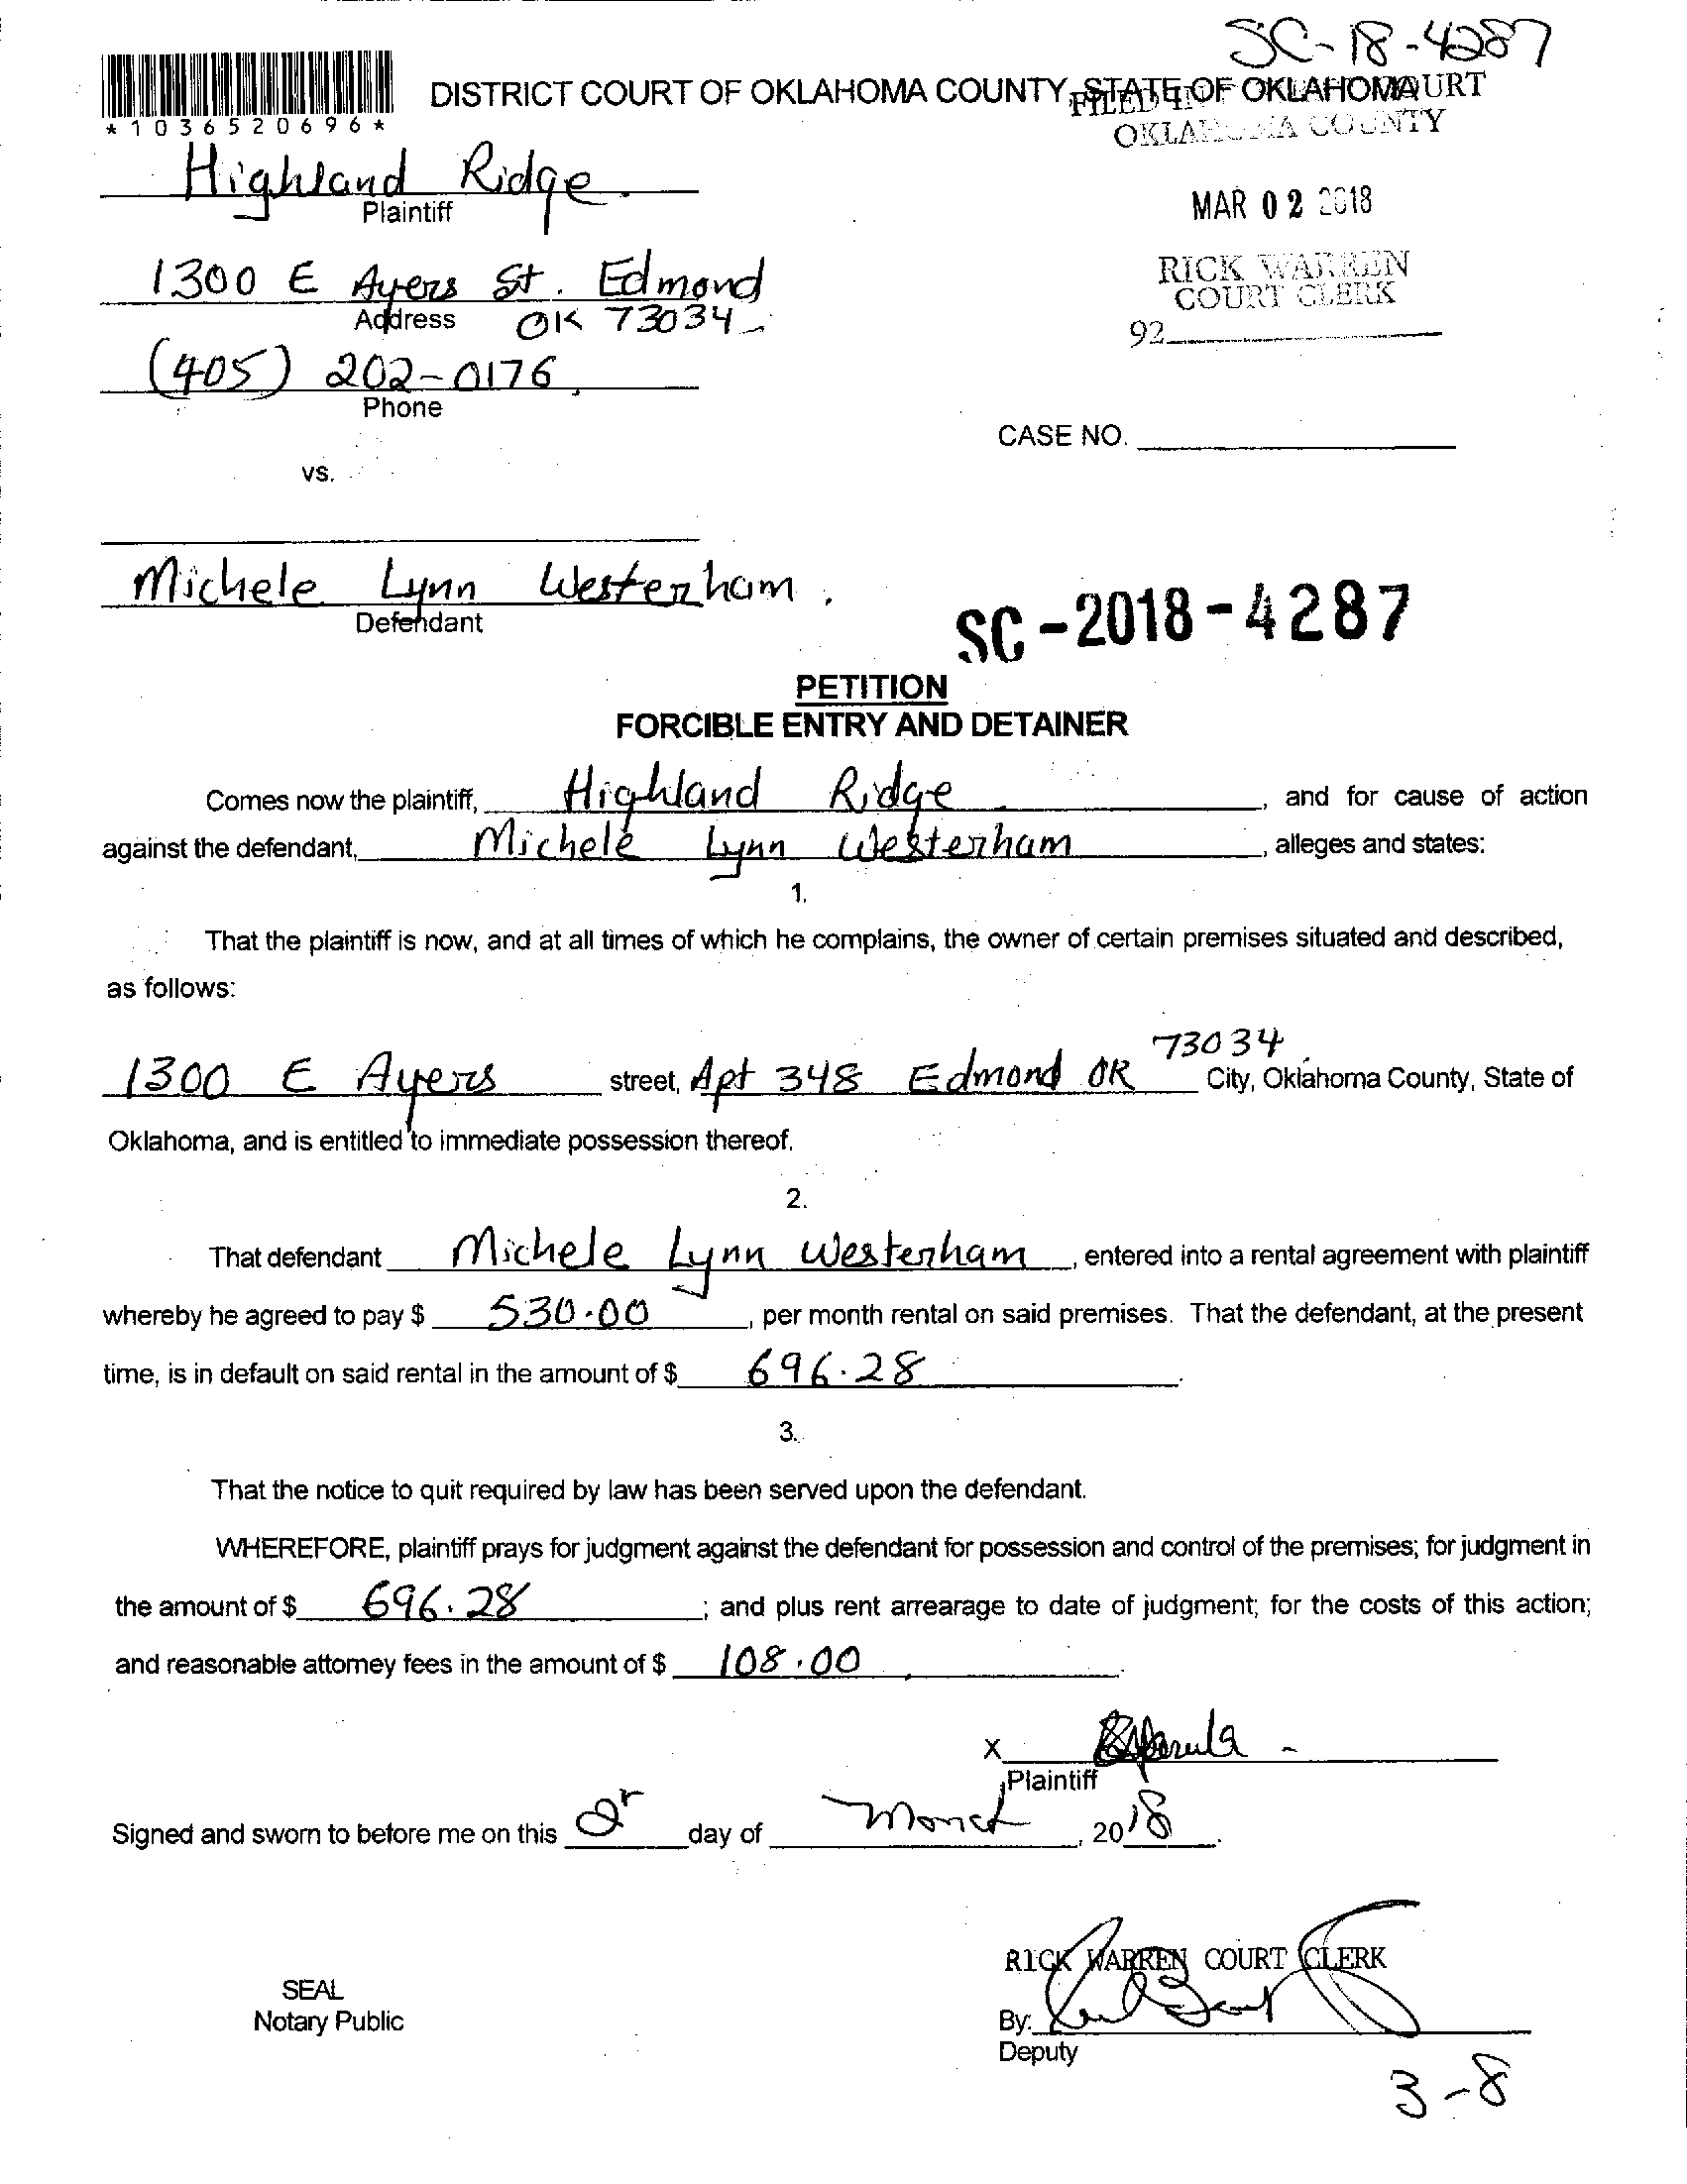 SC-18-4287
*1036520696*
DISTRICT COURT OF OKLAHOMA COUNTY, STATE OF OKLAHOMA
FILED IN COURT
OKLAHOMA COUNTY
Highland Ridge
Plaintiff
MAR 02 2018
1300 E Ayers St. Edmond
Address OK 73034
RICK WARREN
COURT CLERK
92
(405) 202-0176
Phone
CASE NO.
vs.
Michele Lynn Westerham
Defendant
SC-2018-4287
PETITION
FORCIBLE ENTRY AND DETAINER
Comes now the plaintiff, Highland Ridge, and for cause of action
against the defendant, Michele Lynn Westerham, alleges and states:
1.
That the plaintiff is now, and at all times of which he complains, the owner of certain premises situated and described,
as follows:
73034
1300 E Ayers street, Apt 348 Edmond OK City, Oklahoma County, State of
Oklahoma, and is entitled to immediate possession thereof.
2.
That defendant Michele Lynn Westerham, entered into a rental agreement with plaintiff
whereby he agreed to pay $ 530.00, per month rental on said premises. That the defendant, at the present
time, is in default on said rental in the amount of $ 696.28.
3.
That the notice to quit required by law has been served upon the defendant.
WHEREFORE, plaintiff prays for judgment against the defendant for possession and control of the premises; for judgment in
the amount of $ 696.28; and plus rent arrearage to date of judgment; for the costs of this action;
and reasonable attorney fees in the amount of $ 108.00.
X
Plaintiff
Signed and sworn to before me on this day of March, 2018.
RICK WARREN COURT CLERK
SEAL
Notary Public
By:
Deputy
3-8